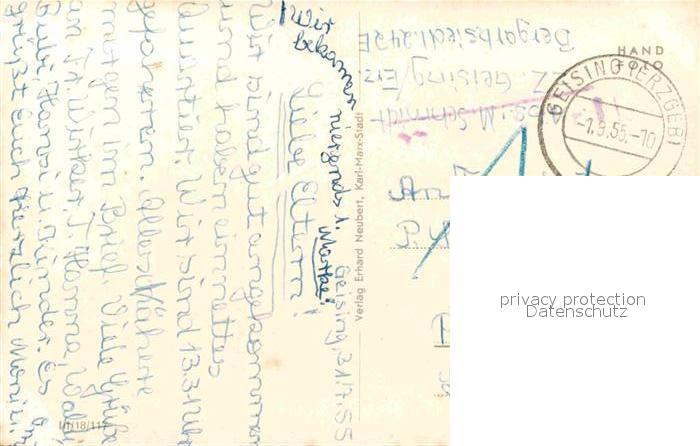 Geising, 31.7.55
Liebe Eltern!
Wir sind gut angekommen
und haben ein nettes
Quartier. Wir sind 13.34 Uhr
gefahren. Alles Nähere
morgen im Brief. Viele Grüße
an Fr. Wirkert, T. Hanna, Waldi,
Bubi, Hansi u. Kinder. Es
grüßt Euch herzlich
Wir
bekommen
nirgends 1.
Marke!
Verlag Erhard Neubert, Karl-Marx-Stadt
III/18/117
Abs.: M. Schmidt
z. Z. Geising/Erz.
Bergarbsiedl. 242E
HAND
FOTO
GEISING (ERZGEB)
-1.8.55.-10
An
P.
privacy protection
Datenschutz